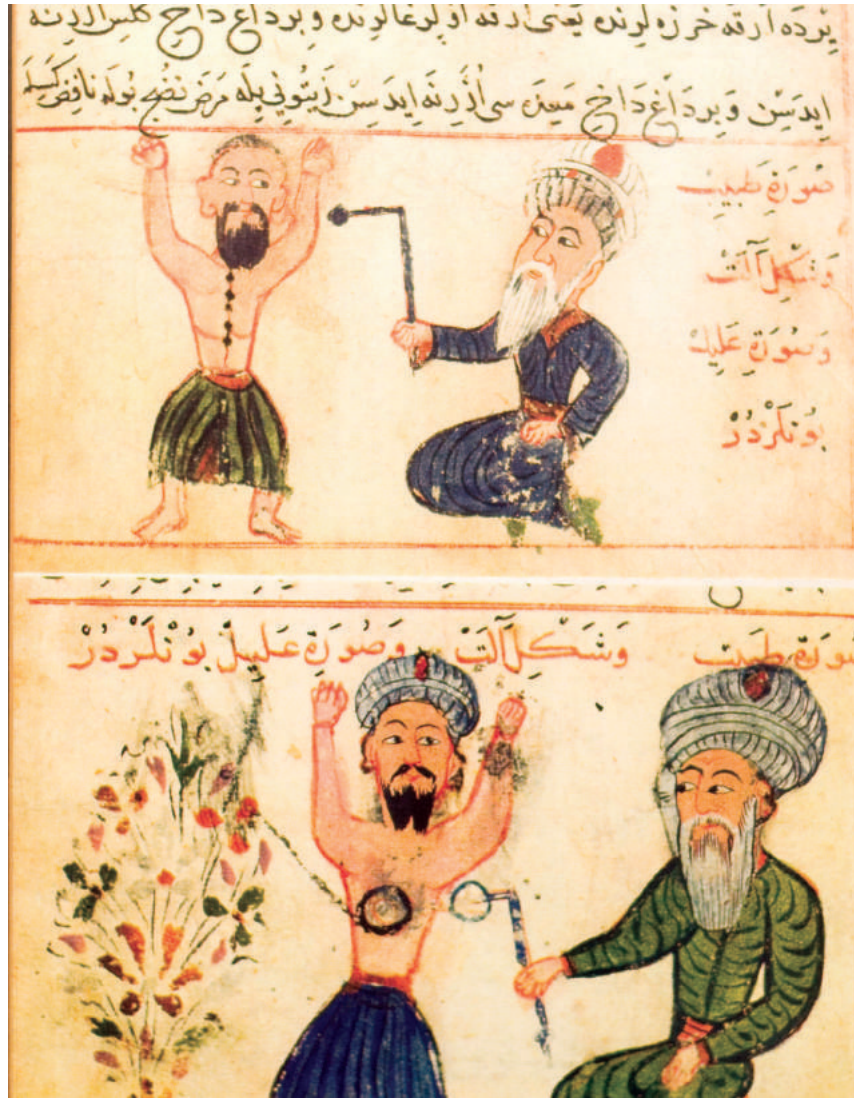 يرده ارته خرزه لرنده يعنى ارته اولرغالرنده وبرداغ داخى كلس اازرنه
ايدسن وبرداغ داخى معده سى اُزرنه ايدسن زيتونى بله مرض نضج بوله نافض كسله
صُورَةِ طَبيب
وَشَكْلِ آلَتْ
وَصُورَةِ عَلِيلْ
بُونْلَرْدُرْ
صورَةِ طبيب وَشَكْلِ آلَتْ وَصُورَةِ عَلِيلْ بُونْلَرْدُرْ